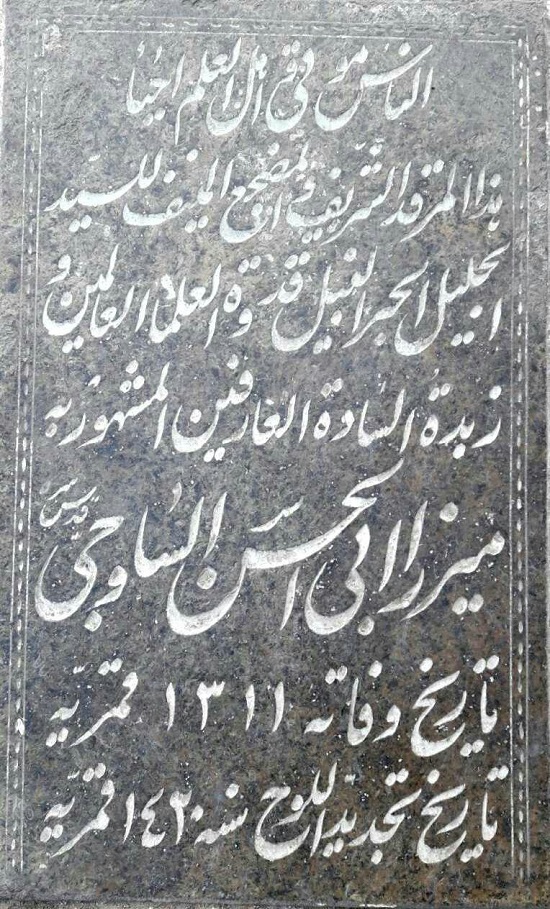 الناس موتی و اهل العلم احیاء
هذا المرقد الشریف و المضجع المنیف للسید
الجلیل الحبر النبیل قدوة العلماء العالمین و
زبدة السادة العارفین المشهور به
میرزا ابی الحسن الساوجی قدس سره
تاریخ وفاته ١٣١١ قمریه
تاریخ تجدید اللوح سنه ١٤٢٠ قمریه